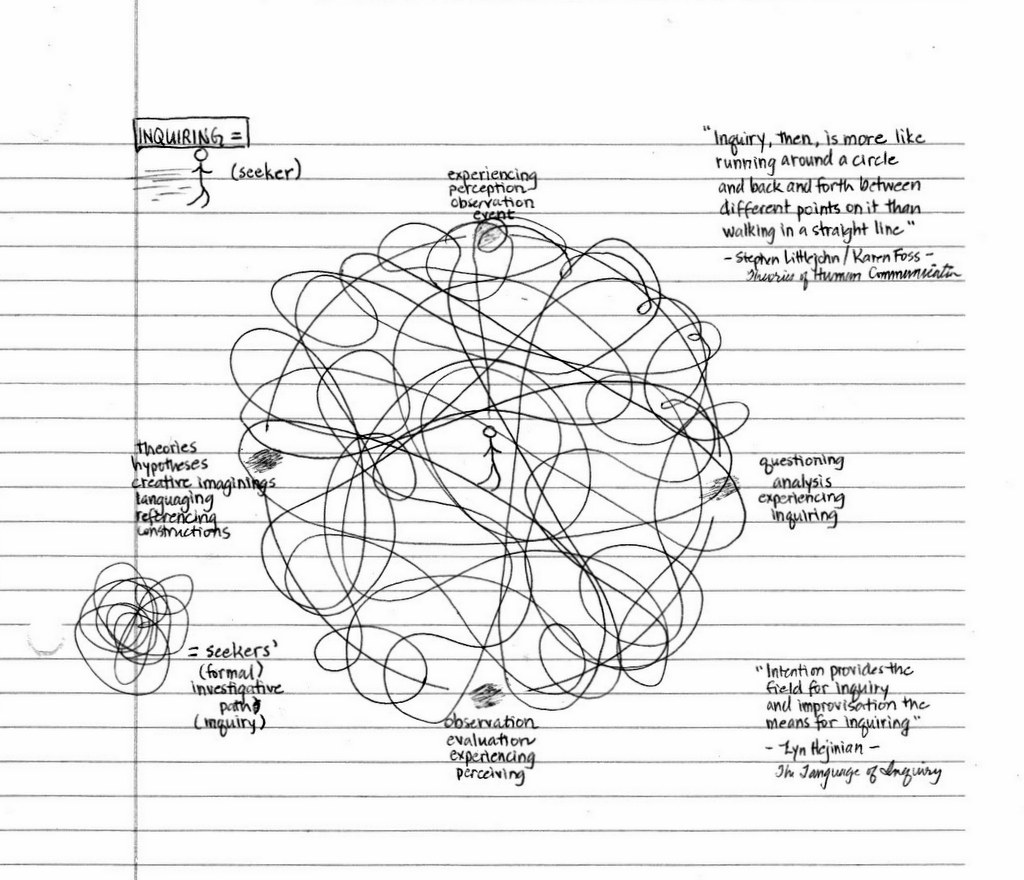 INQUIRING =
(seeker)
"Inquiry, then, is more like
running around a circle
and back and forth between
different points on it than
walking in a straight line"
- Stephen Littlejohn / Karen Foss -
Theories of Human Communication
experiencing
perception
observation
event
theories
hypotheses
creative imaginings
languaging
referencing
constructions
questioning
analysis
experiencing
inquiring
= seekers'
(formal)
investigative
path
(inquiry)
observation
evaluation
experiencing
perceiving
"Intention provides the
field for inquiry
and improvisation the
means for inquiring"
- Lyn Hejinian -
The Language of Inquiry